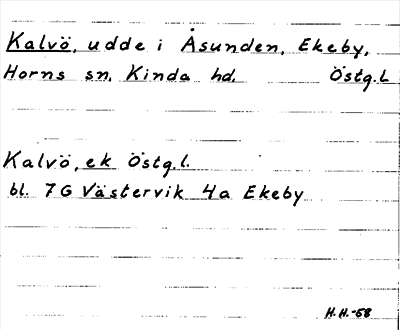 Kalvö, udde i Åsunden, Ekeby,
Horns sn. Kinda hd. Östg.L
Kalvö, ek Östg.l.
bl. 7G Västervik 4a Ekeby
H.H.-58